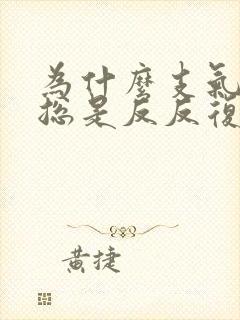 為什麼支氣
總是反反復
黃捷